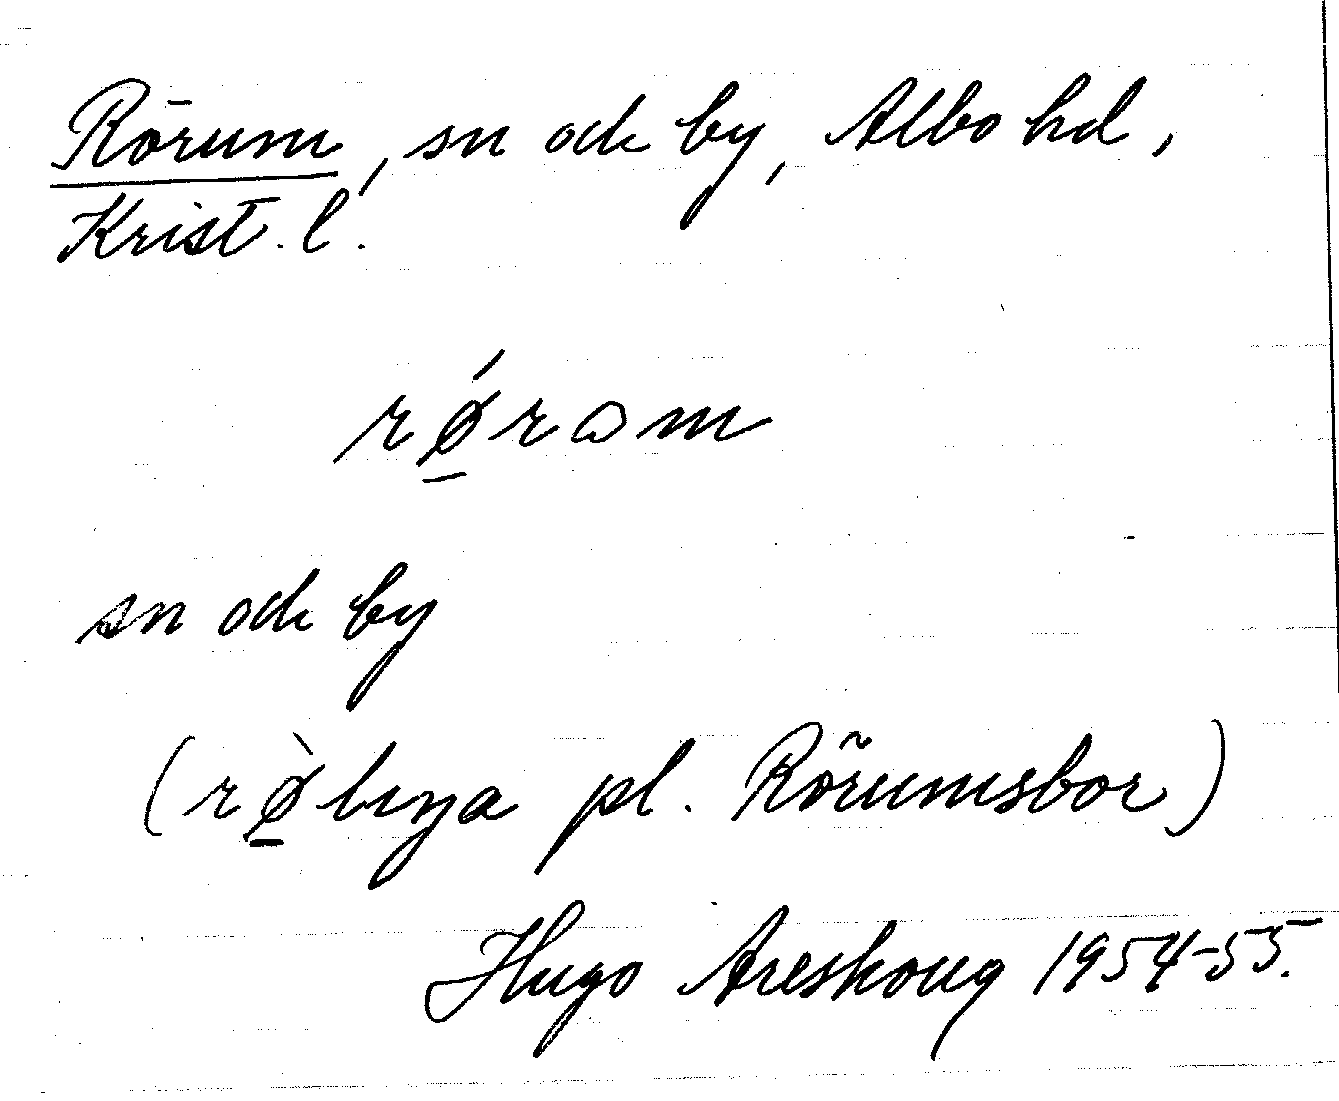 Rörum, sn och by, Albo hd,
Krist. l.
rǿ̱rɷm
sn och by
(rø̱̀bya pl. Rörumsbor)
Hugo Areskoug 1954-55.